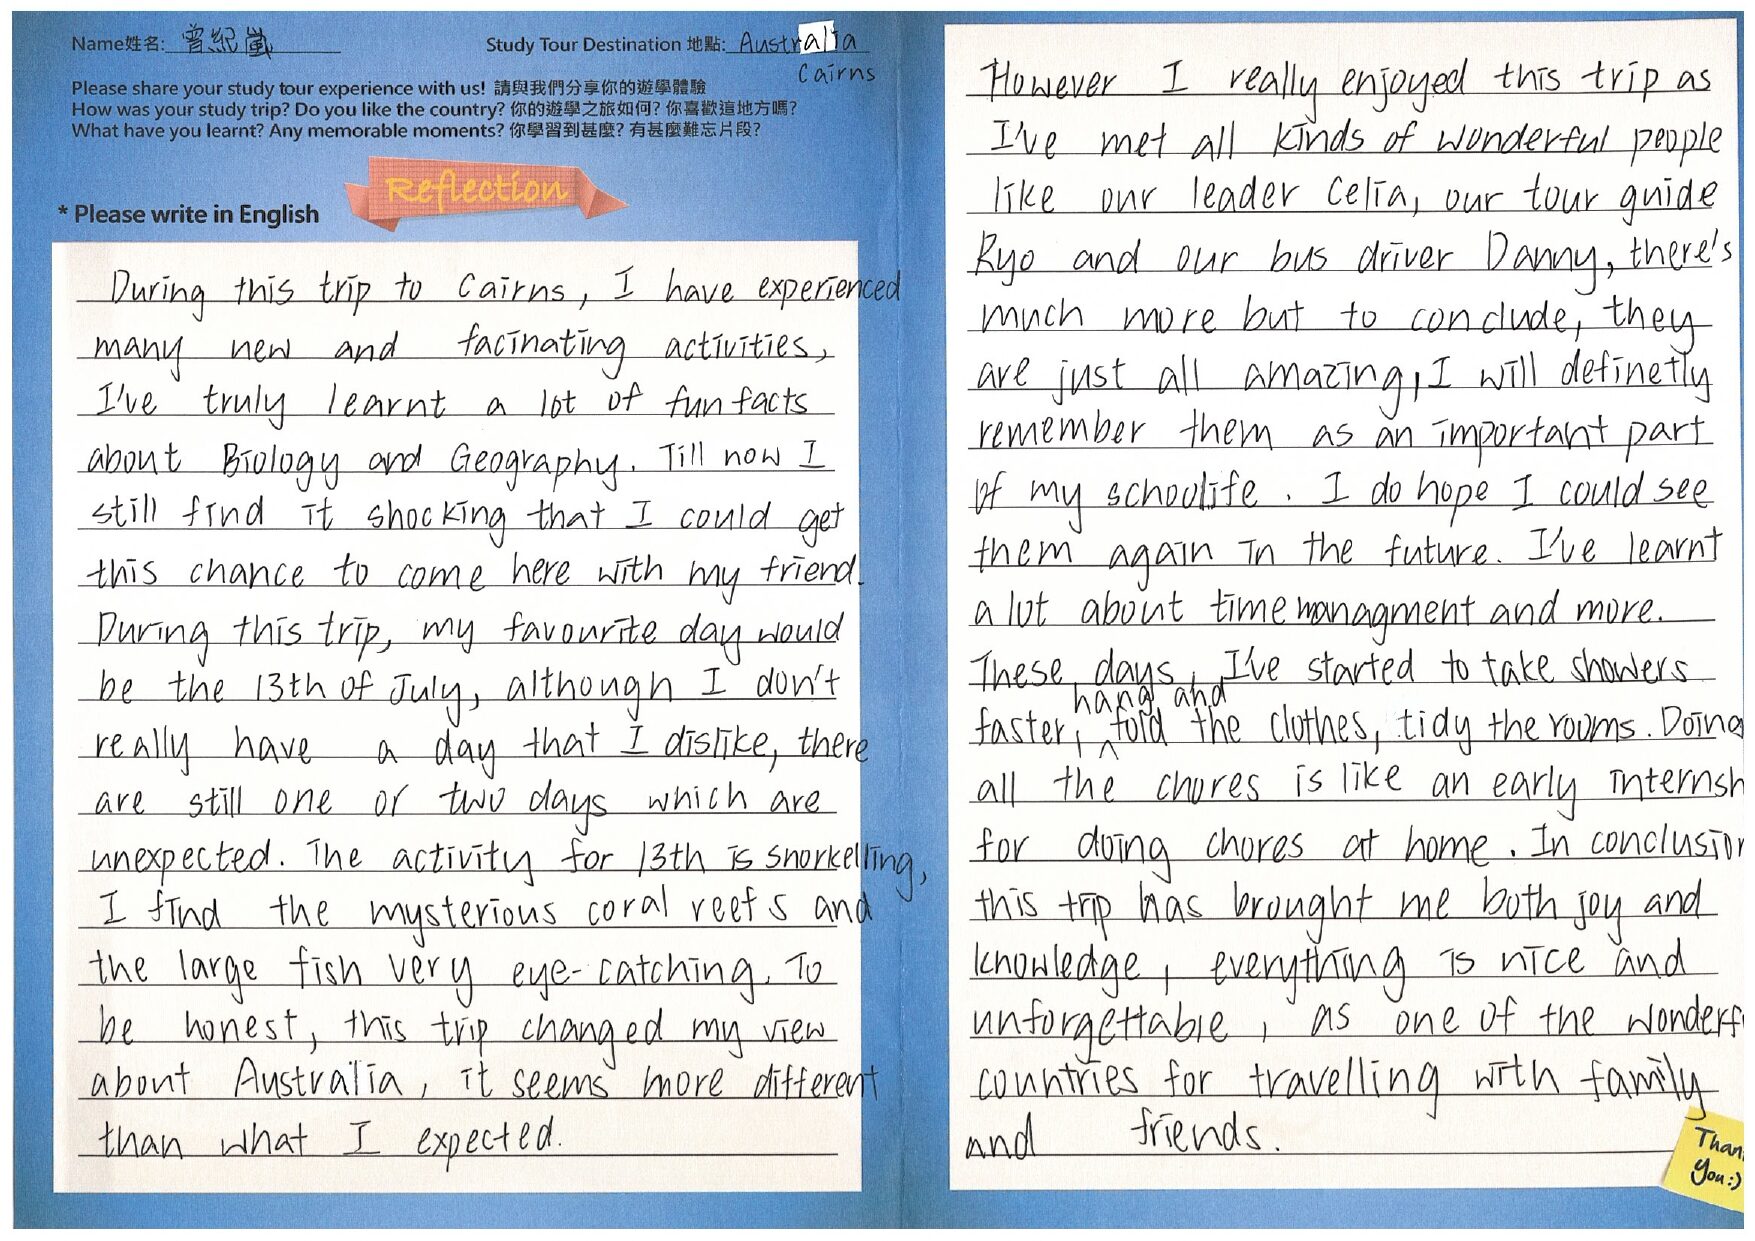 Name姓名: 曾紀嵐
Study Tour Destination 地點: Australia
Cairns
Please share your study tour experience with us! 請與我們分享你的遊學體驗
How was your study trip? Do you like the country? 你的遊學之旅如何? 你喜歡這地方嗎?
What have you learnt? Any memorable moments? 你學習到甚麼? 有甚麼難忘片段?
Reflection
* Please write in English
During this trip to Cairns, I have experienced
many new and facinating activities,
I've truly learnt a lot of fun facts
about Biology and Geography. Till now I
still find it shocking that I could get
this chance to come here with my friend.
During this trip, my favourite day would
be the 13th of July, although I don't
really have a day that I dislike, there
are still one or two days which are
unexpected. The activity for 13th is snorkelling,
I find the mysterious coral reefs and
the large fish very eye-catching. To
be honest, this trip changed my view
about Australia, it seems more different
than what I expected.
However I really enjoyed this trip as
I've met all kinds of wonderful people
like our leader Celia, our tour guide
Ryo and our bus driver Danny, there's
much more but to conclude, they
are just all amazing, I will definetly
remember them as an important part
of my schoolife. I do hope I could see
them again in the future. I've learnt
a lot about time managment and more.
These days, I've started to take showers
faster, hang and fold the clothes, tidy the rooms. Doing
all the chores is like an early internsh
for doing chores at home. In conclusion
this trip has brought me both joy and
knowledge, everything is nice and
unforgettable, as one of the wonderf
countries for travelling with family
and friends.
Than
You:)